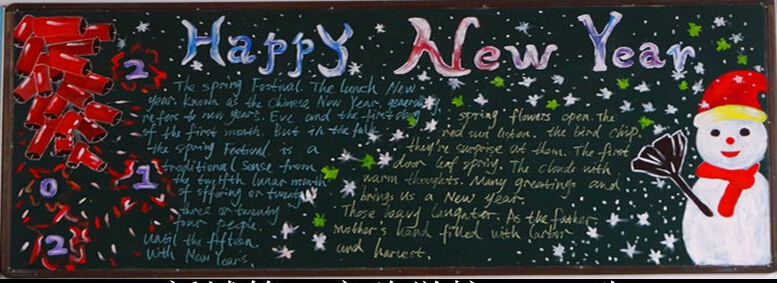 Happy New Year
2
0
1
2
The spring Festival. The lunch New
year. known as the Chinese New Year generally
refers to new years. Eve and the first day
of the first month. But in the folk
the spring Festival is a
traditional sense from
of twelfth lunar month
of offering or twenty
three or twenty
four people.
Until the fifteen.
With New Years.
spring flowers open. The
red sun listen. the bird chip.
they're surprise at them. The first
door leaf spring. The clouds with
warm thoughts. Many greetings and
brings us a New year.
Those heavy laughter. As the father
mother's hand filled with labor
and harvest.